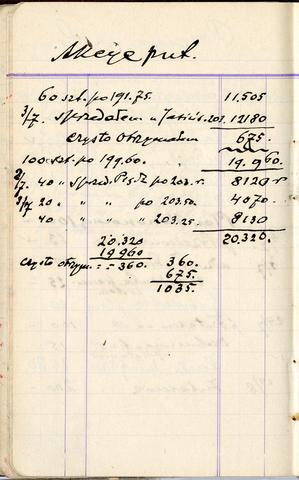 Akcye put.
60 szt. po 191.75. 11.505
3/7. sprzedałem u 203. 12180
czysto otrzymałem 675.
100 szt. po 199.60. 19.960.
2/7. 40 " sprzed. po 203. r. 8120 r
3/7 20 " " " po 203.50. 4070.
40 " " " 203.25. 8130
20.320 20.320.
19960
czysto otrzym. = = 360. 360.
675.
1035.